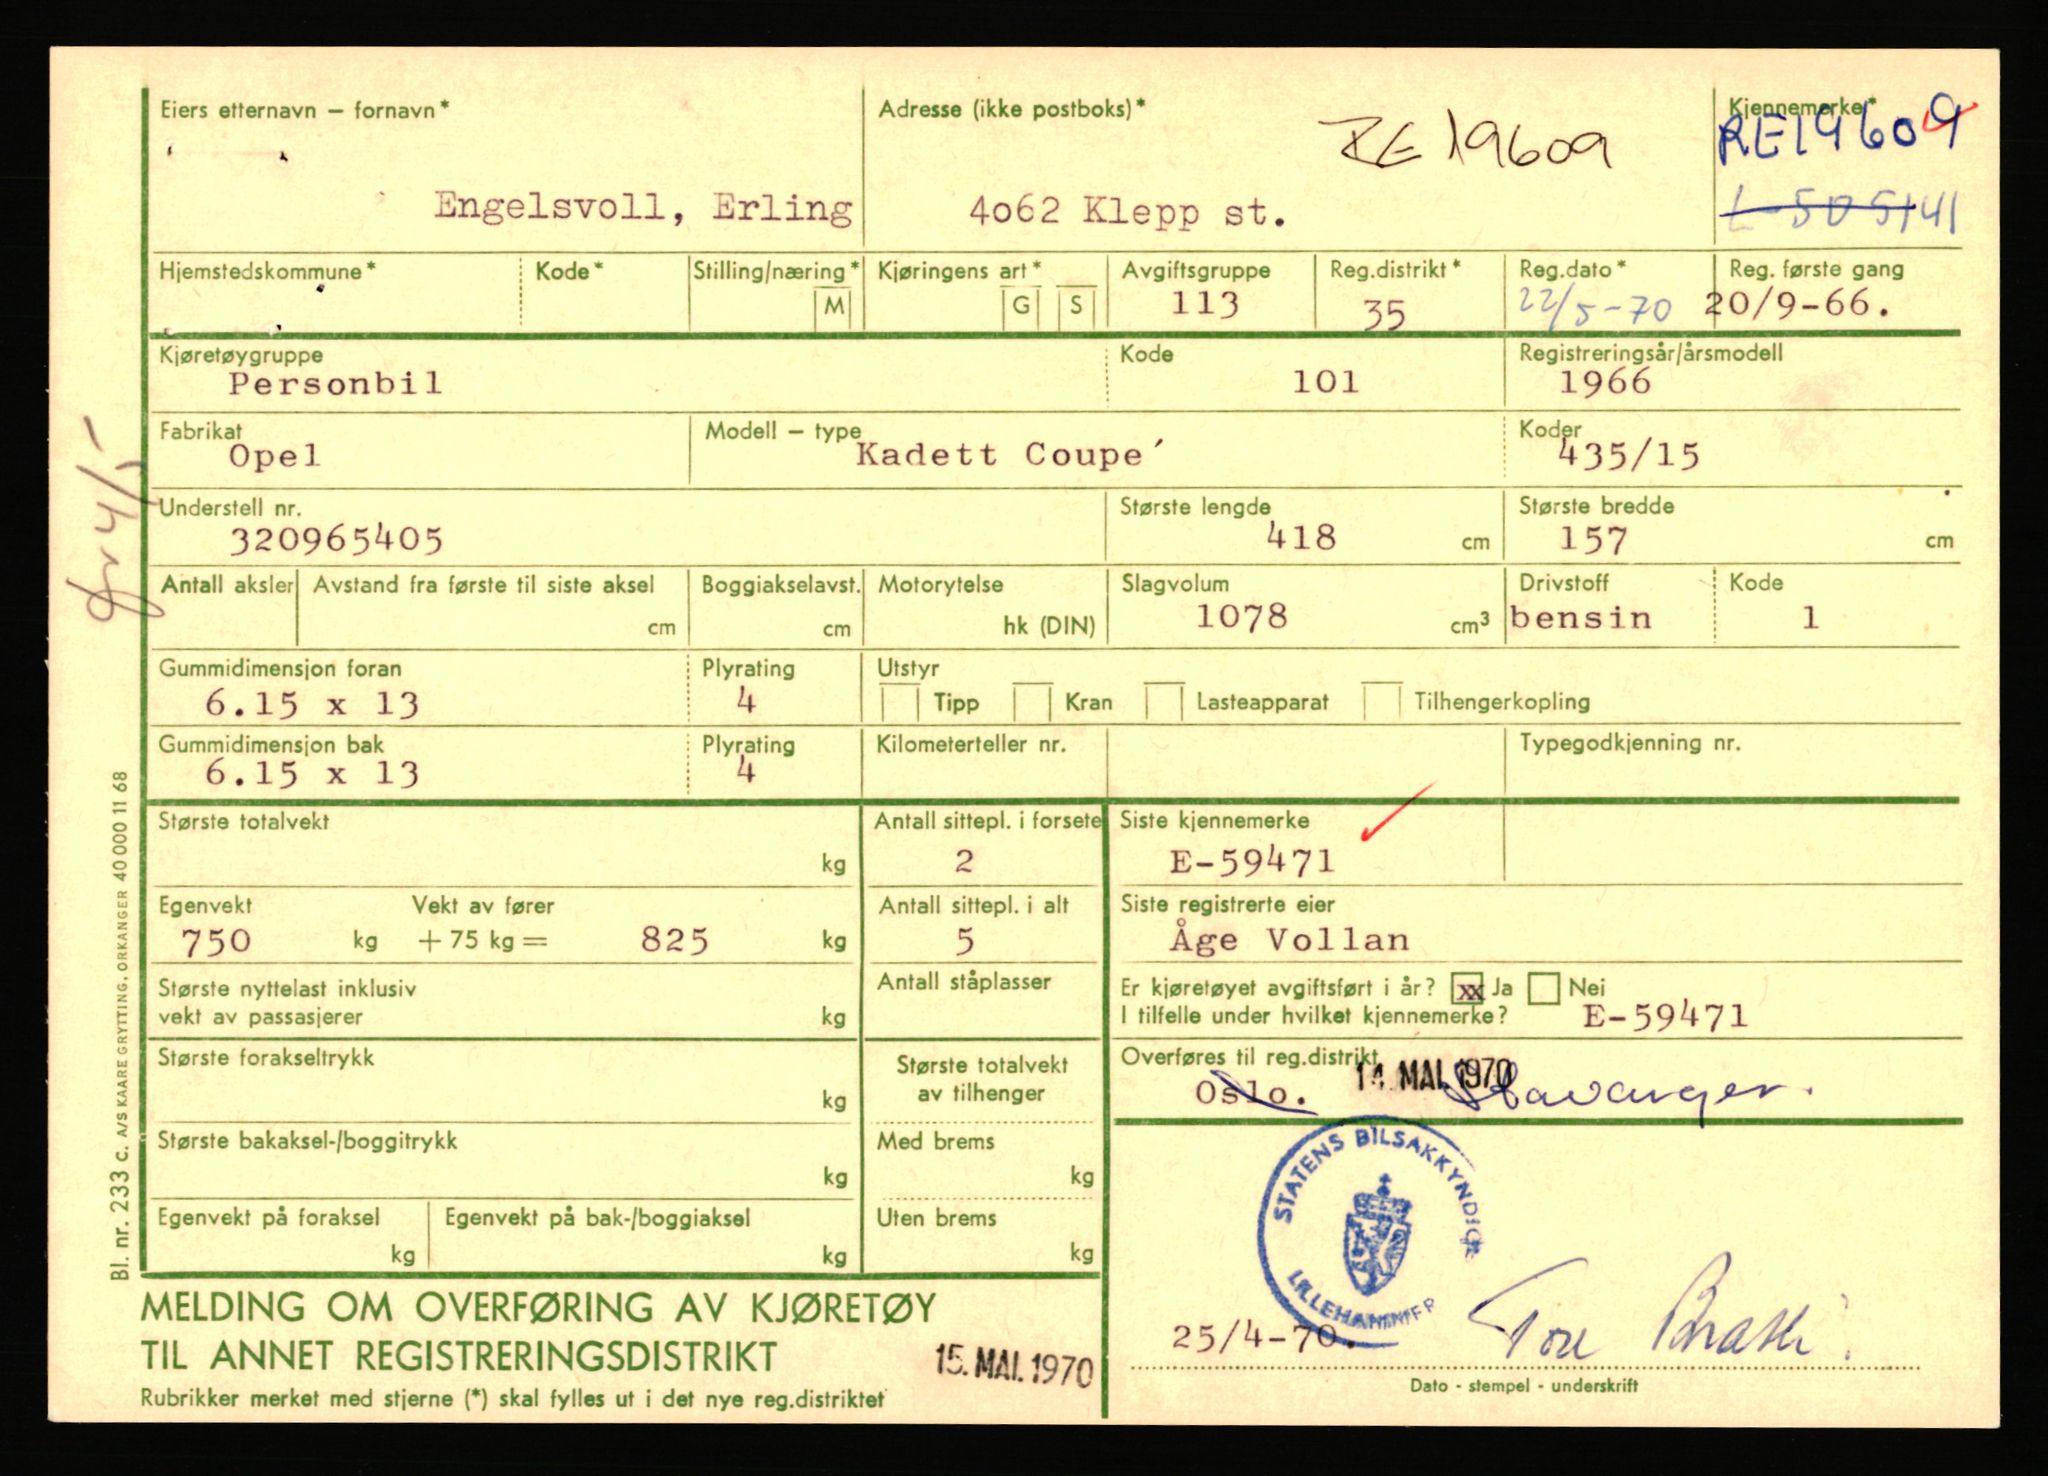 Eiers etternavn – fornavn*
Adresse (ikke postboks)*
RE 19609
Kjennemerke*
RE19609
Engelsvoll, Erling
4o62 Klepp st.
Hjemstedskommune*
Kode*
Stilling/næring*
M
Kjøringens art*
G
S
Avgiftsgruppe
113
Reg.distrikt*
35
Reg.dato*
22/5-70
Reg. første gang
20/9-66.
Kjøretøygruppe
Personbil
Kode
101
Registreringsår/årsmodell
1966
Fabrikat
Opel
Modell – type
Kadett Coupe´
Koder
435/15
Understell nr.
320965405
Største lengde
418 cm
Største bredde
157 cm
Antall aksler
Avstand fra første til siste aksel
cm
Boggiakselavst.
cm
Motorytelse
hk (DIN)
Slagvolum
1078 cm³
Drivstoff
bensin
Kode
1
Gummidimensjon foran
6.15 x 13
Plyrating
4
Utstyr
Tipp
Kran
Lasteapparat
Tilhengerkopling
Gummidimensjon bak
6.15 x 13
Plyrating
4
Kilometerteller nr.
Typegodkjenning nr.
Største totalvekt
kg
Antall sittepl. i forsete
2
Siste kjennemerke
E-59471
Egenvekt
750 kg
Vekt av fører
+ 75 kg = 825 kg
Antall sittepl. i alt
5
Siste registrerte eier
Åge Vollan
Største nyttelast inklusiv
vekt av passasjerer
kg
Antall ståplasser
Er kjøretøyet avgiftsført i år? xx Ja Nei
I tilfelle under hvilket kjennemerke? E-59471
Største forakseltrykk
kg
Største totalvekt
av tilhenger
Overføres til reg.distrikt
14. MAI. 1970
Oslo. Stavanger.
Største bakaksel-/boggitrykk
kg
Med brems
kg
Egenvekt på foraksel
kg
Egenvekt på bak-/boggiaksel
kg
Uten brems
kg
STATENS BILSAKKYNDIGE
LILLEHAMMER
25/4-70.
Dato - stempel - underskrift
MELDING OM OVERFØRING AV KJØRETØY
TIL ANNET REGISTRERINGSDISTRIKT
15. MAI. 1970
Rubrikker merket med stjerne (*) skal fylles ut i det nye reg.distriktet
Bl. nr. 233 c. A/S KAARE GRYTTING, ORKANGER 40 000 11 68